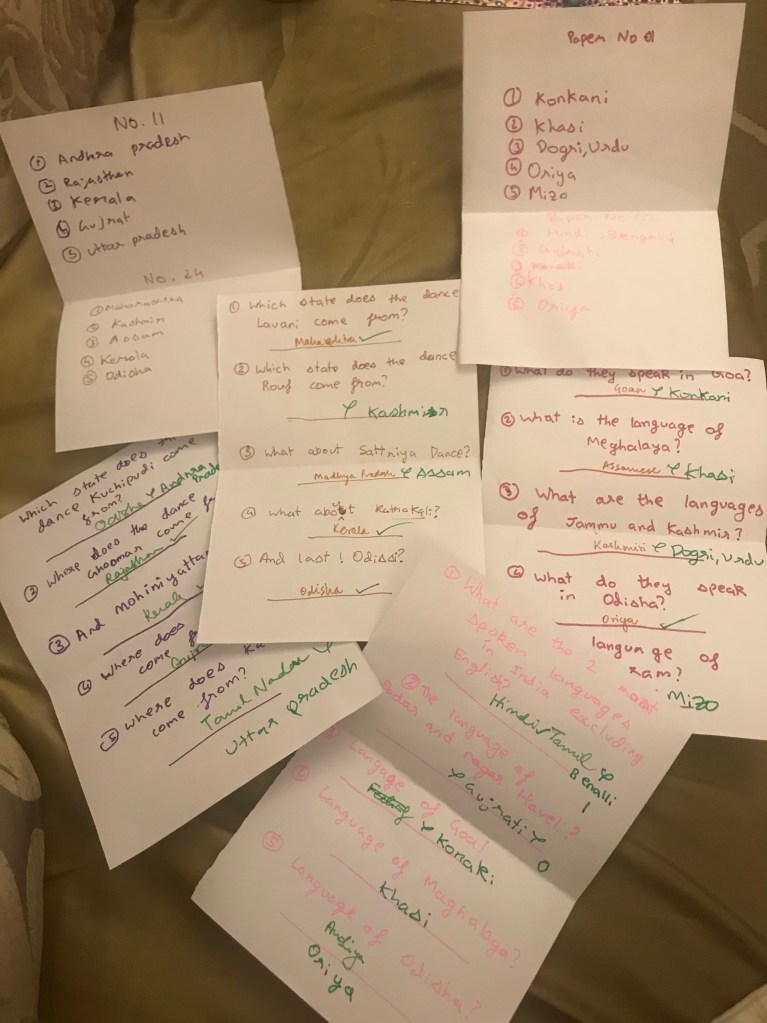 No. 11
① Andhra pradesh
② Rajasthan
③ Kerala
④ Gujrat
⑤ Uttar pradesh
No. 24
① Maharashtra
② Kashmir
③ Assam
④ Kerala
⑤ Odisha
Paper No 01
① Konkani
② Khasi
③ Dogri, Urdu
④ Oriya
⑤ Mizo
Hindi, Bengali
Gujrati
Konaki
Khasi
Oriya
① Which state does the dance
Lavani come from?
② Which state does the dance
Rouf come from?
Kashmir
③ What about Sattriya Dance?
Madhya Pradesh Assam
④ What about Kathakali?
Kerala ✓
⑤ And last! Odissi?
Odisha ✓
① What do they speak in Goa?
Goan Konkani
② What is the language of
Meghalaya?
Assamese Khasi
③ What are the languages
of Jammu and Kashmir?
Kashmiri Dogri, Urdu
④ What do they speak
in Odisha?
Oriya ✓
language of
ram?
Mizo
Which state does th
dance Kuchipudi come
from?
Odisha Andhra
Prade
② Where does the dance
Ghoomar come f
Rajasthan ✓
③ And Mohiniyattam
Kerala
④ Where does
come f
Guj
⑤ Where does Ka
come from?
Tamil Nadu
Uttar pradesh
① What are the 2 most
spoken languages
in India excluding
English?
Hindi Tamil
Benalli
1
② The language of
Dadar and nagar Haveli?
Gujrati
0
Langage of Goa?
Konaki
Language of Maghalaya?
Khasi
⑤ Language of Odisha?
Oriya